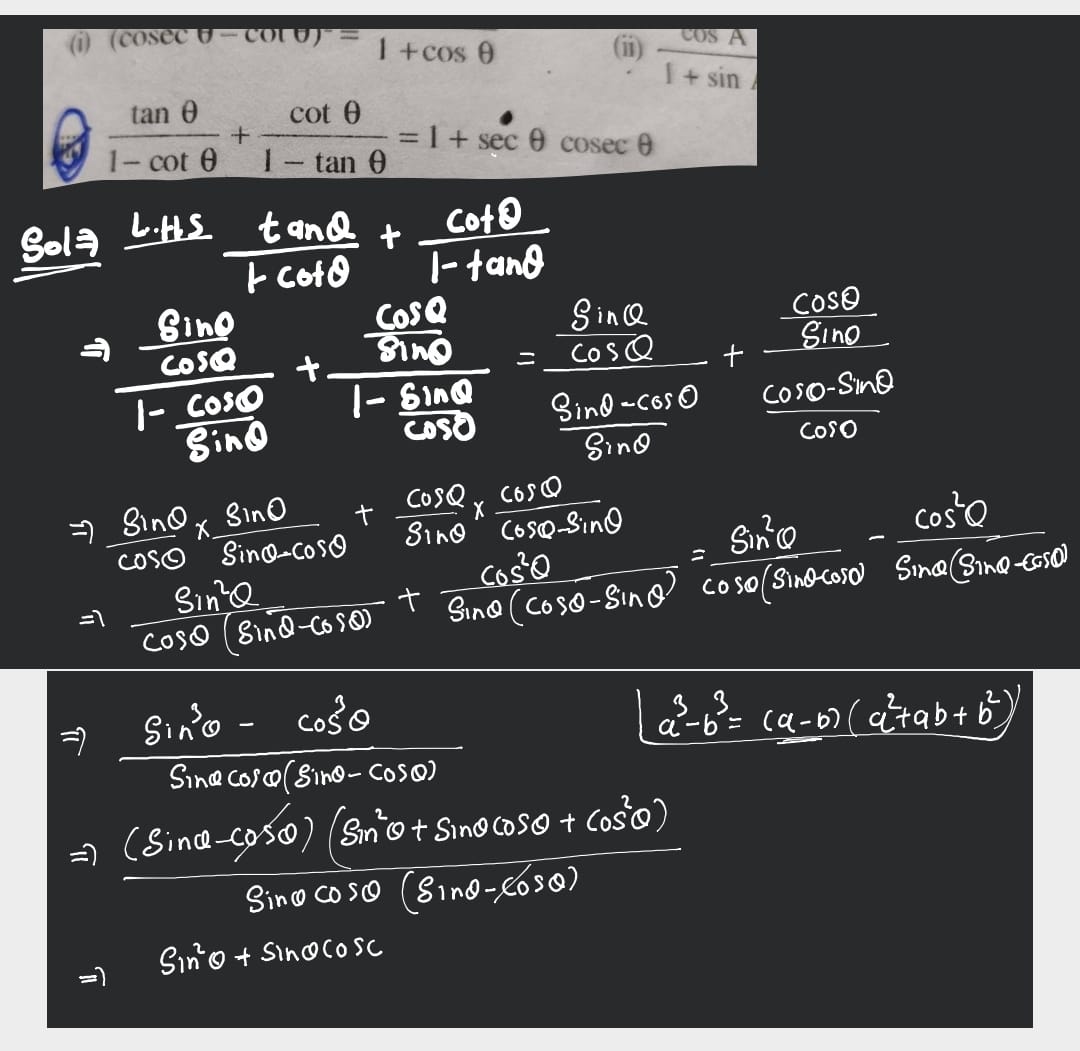 (i) (cosec θ – cot θ)² = 1 + cos θ (ii) cos A
1 + sin
tan θ / 1 – cot θ + cot θ / 1 – tan θ = 1 + sec θ cosec θ
Sol ⇒ L.H.S tanθ / 1-cotθ + cotθ / 1-tanθ
⇒ (sinθ/cosθ) / (1- cosθ/sinθ) + (cosθ/sinθ) / (1- sinθ/cosθ) = (sinθ/cosθ) / ((sinθ-cosθ)/sinθ) + (cosθ/sinθ) / ((cosθ-sinθ)/cosθ)
⇒ sinθ/cosθ × sinθ/(sinθ-cosθ) + cosθ/sinθ × cosθ/(cosθ-sinθ)
⇒ sin²θ / cosθ(sinθ-cosθ) + cos²θ / sinθ(cosθ-sinθ) = sin²θ / cosθ(sinθ-cosθ) - cos²θ / sinθ(sinθ-cosθ)
⇒ sin³θ - cos³θ / sinθcosθ(sinθ-cosθ) a³-b³ = (a-b)(a²+ab+b²)
⇒ (sinθ-cosθ)(sin²θ+sinθcosθ+cos²θ) / sinθcosθ(sinθ-cosθ)
⇒ sin²θ + sinθcosc